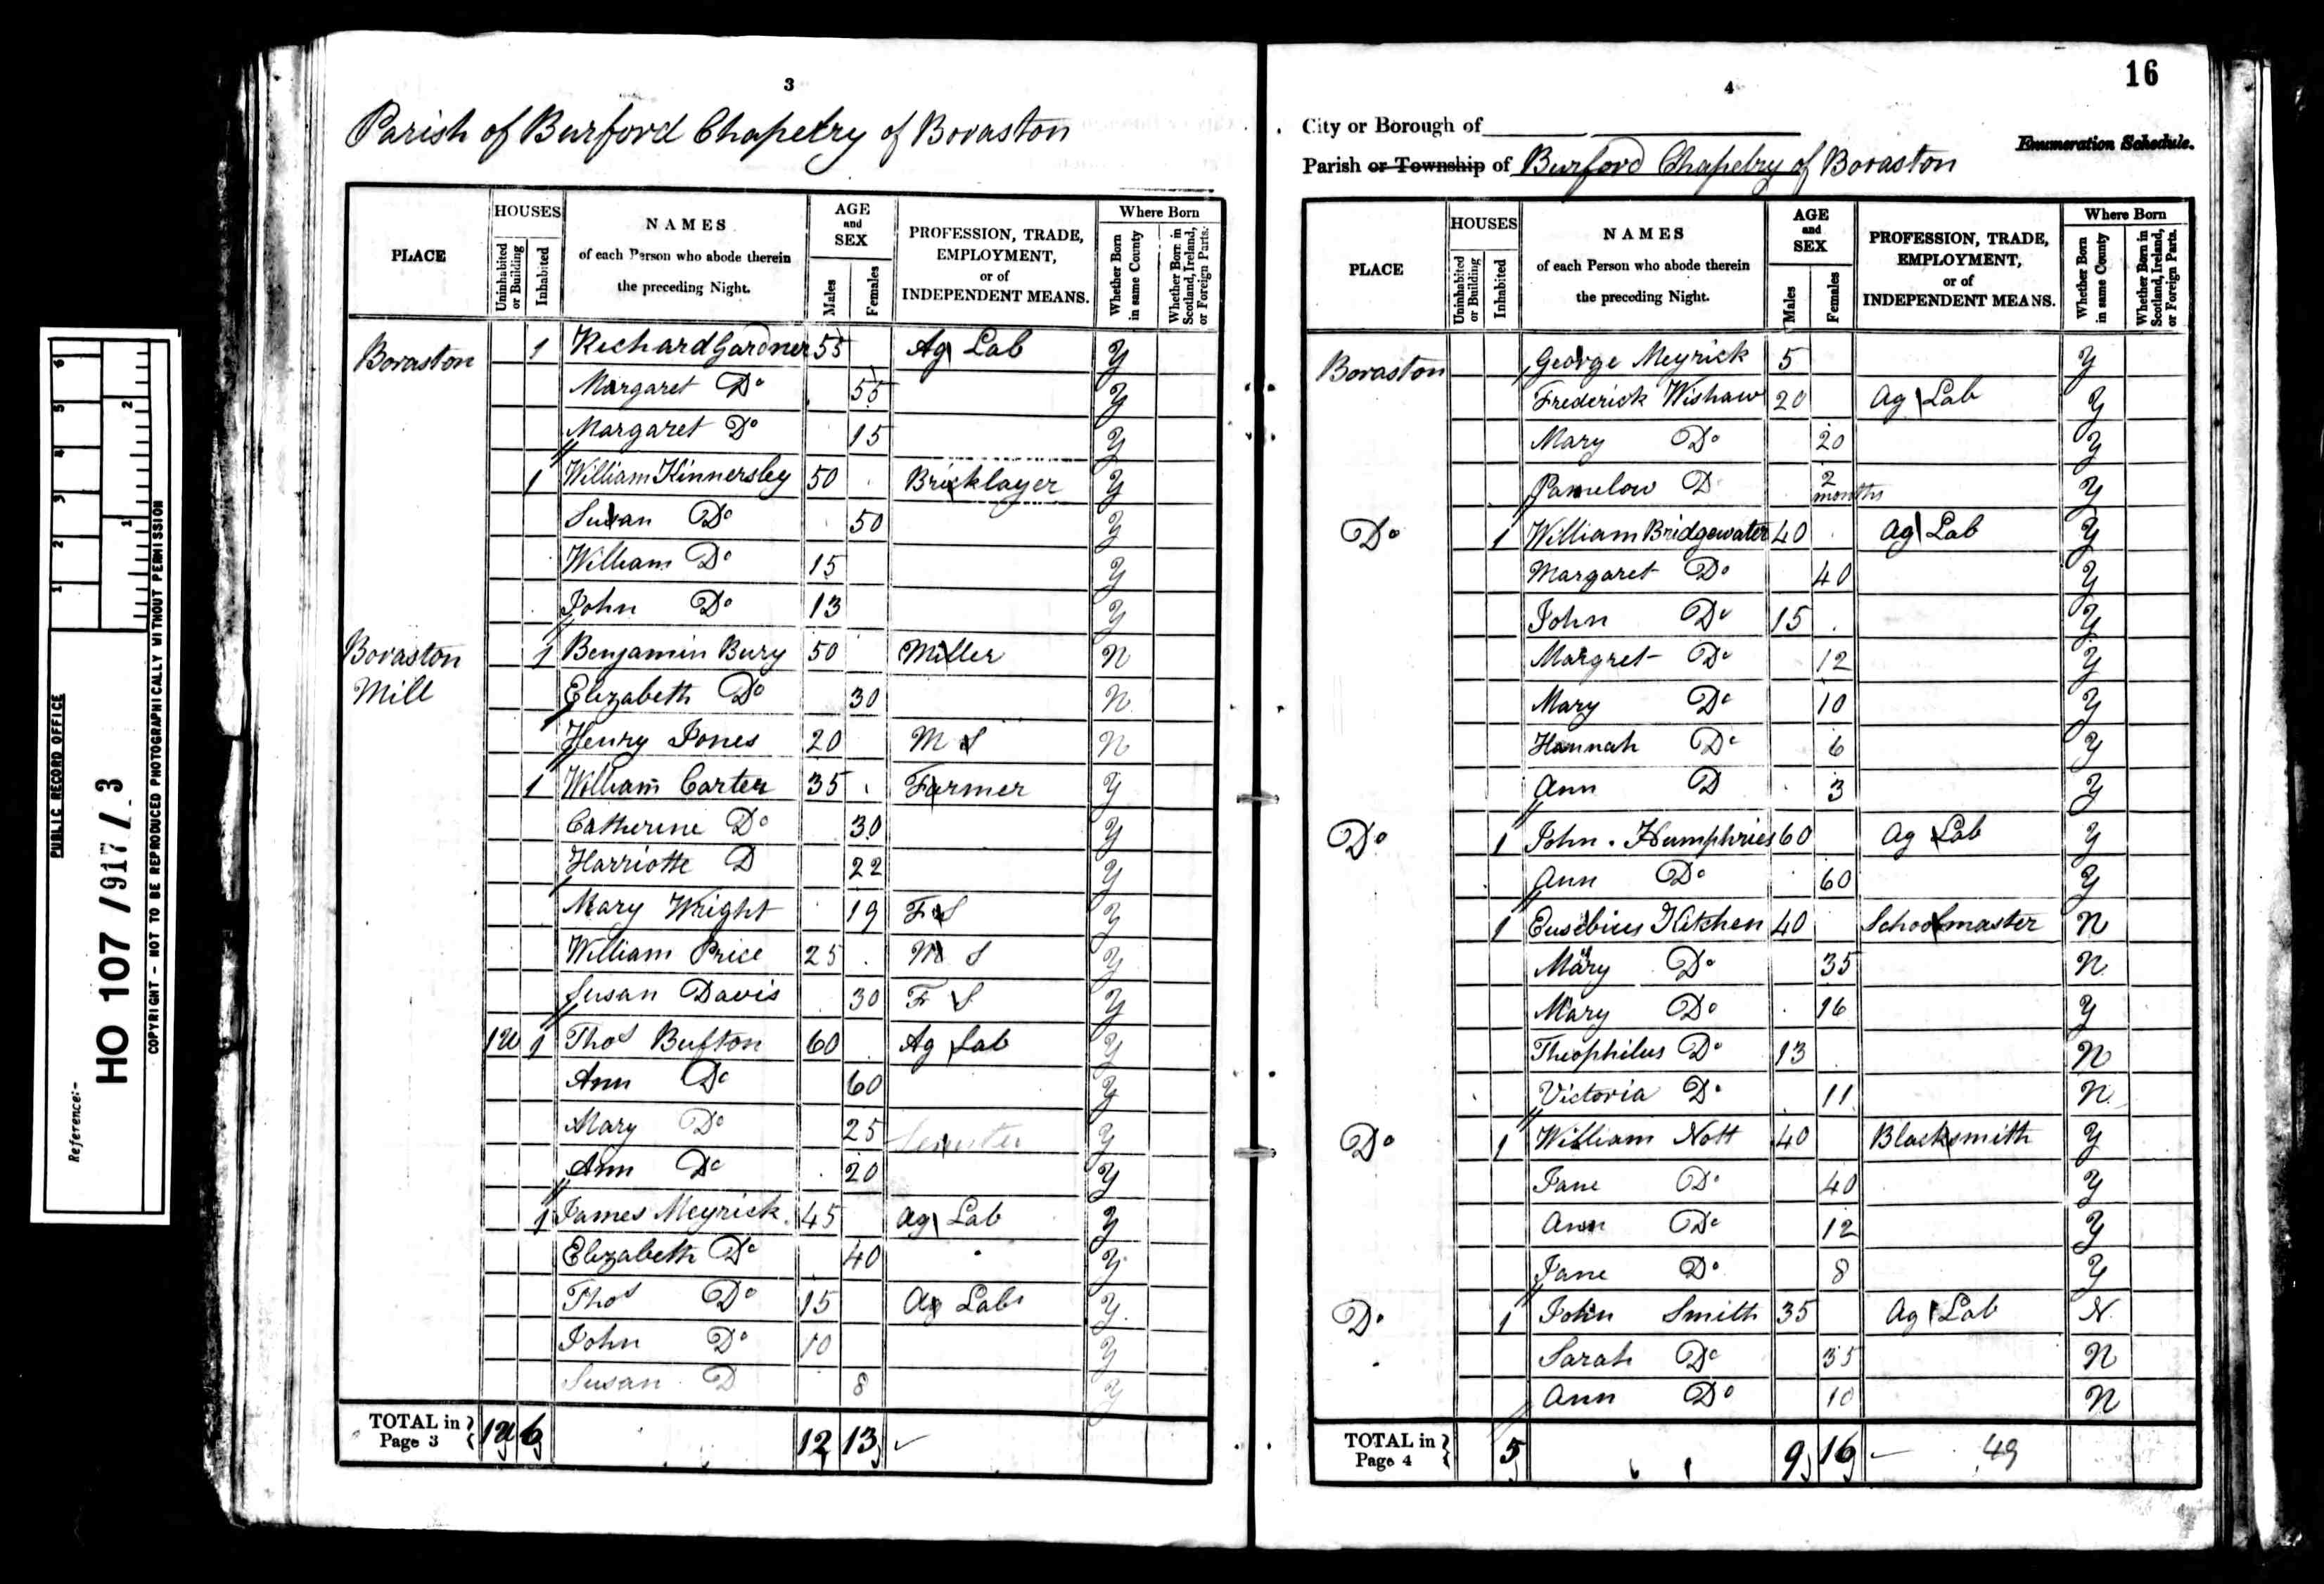 PUBLIC RECORD OFFICE
Reference:-
HO 107 / 917 / 3
COPYRIGHT - NOT TO BE REPRODUCED PHOTOGRAPHICALLY WITHOUT PERMISSION
1 2 3 4 5 6
1 2
3
Parish of Burford Chapelry of Boraston
PLACE
HOUSES
Uninhabited or Building
Inhabited
NAMES
of each Person who abode therein
the preceding Night.
AGE
and
SEX
Males
Females
PROFESSION, TRADE,
EMPLOYMENT,
or of
INDEPENDENT MEANS.
Where Born
Whether Born in same County
Whether Born in Scotland, Ireland, or Foreign Parts.
Boraston 1 Richard Gardner 55 Ag Lab Y
Margaret Do 55 Y
Margaret Do 15 Y
1 William Kinnersley 50 Bricklayer Y
Susan Do 50 Y
William Do 15 Y
John Do 13 Y
Boraston 1 Benjamin Bury 50 Miller N
Mill Elizabeth Do 30 N
Henry Jones 20 M S N
1 William Carter 35 Farmer Y
Catherine Do 30 Y
Harriotte D 22 Y
Mary Wright 19 F S Y
William Price 25 M S Y
Susan Davis 30 F S Y
1U 1 Thos Bufton 60 Ag Lab Y
Ann Do 60 Y
Mary Do 25 Y
Ann Do 20 Y
1 James Meyrick 45 Ag Lab Y
Elizabeth Do 40 Y
Thos Do 15 Ag Lab Y
John Do 10 Y
Susan D 8 Y
TOTAL in Page 3 1U 6 12 13
16
4
City or Borough of
Enumeration Schedule.
Parish or Township of Burford Chapelry of Boraston
PLACE
HOUSES
Uninhabited or Building
Inhabited
NAMES
of each Person who abode therein
the preceding Night.
AGE
and
SEX
Males
Females
PROFESSION, TRADE,
EMPLOYMENT,
or of
INDEPENDENT MEANS.
Where Born
Whether Born in same County
Whether Born in Scotland, Ireland, or Foreign Parts.
Boraston George Meyrick 5 Y
Frederick Wishaw 20 Ag Lab Y
Mary Do 20 Y
Pamelow D 2 months Y
Do 1 William Bridgewater 40 Ag Lab Y
Margaret Do 40 Y
John Do 15 Y
Margret Do 12 Y
Mary Do 10 Y
Hannah Do 6 Y
Ann D 3 Y
Do 1 John Humphries 60 Ag Lab Y
Ann Do 60 Y
1 Eusebius Kitchen 40 Schoolmaster N
Mary Do 35 N
Mary Do 16 Y
Theophilus Do 13 N
Victoria Do 11 N
Do 1 William Nott 40 Blacksmith Y
Jane Do 40 Y
Ann Do 12 Y
Jane Do 8 Y
Do 1 John Smith 35 Ag Lab N
Sarah Do 35 N
Ann Do 10 N
TOTAL in Page 4 5 9 16 49